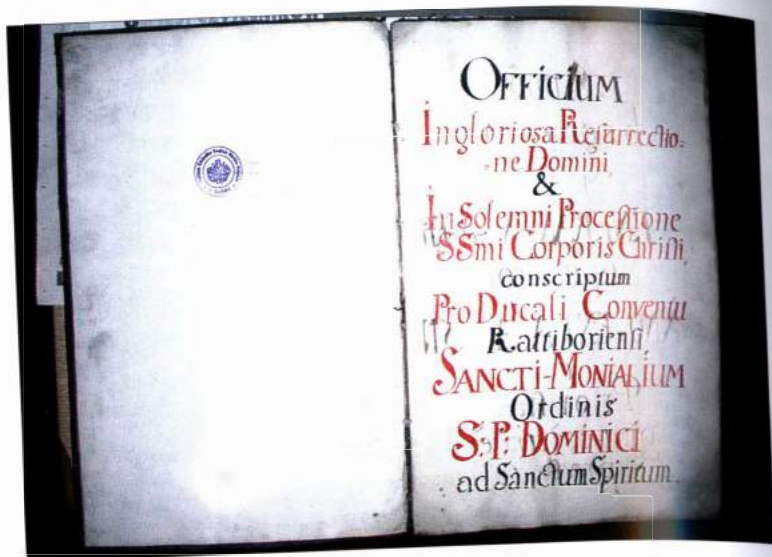 OFFICIUM
In gloriosa Resurrectio=
=ne Domini,
&
In Solemni Processione
SSmi Corporis Christi,
conscriptum
Pro Ducali Conventu
Rattiboriensi,
SANCTI-MONIALIUM
Ordinis
S. P. DOMINICI
ad Sanctum Spiritum.